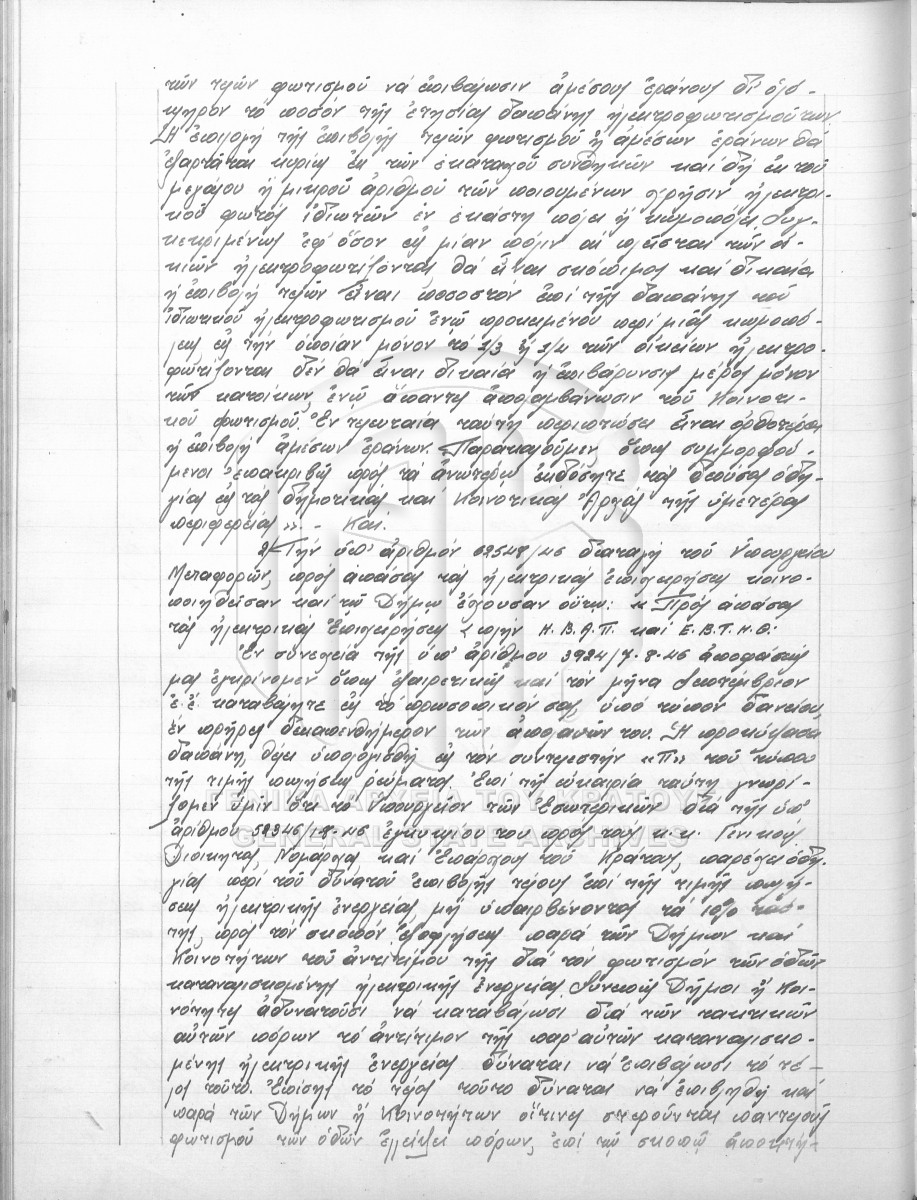 τῶν τελῶν φωτισμοῦ νὰ ἐπιβάλωσιν ἀμέσους ἐράνους δι' ὁλό-
κληρον τὸ ποσὸν τῆς ἐτησίας δαπάνης ἠλεκτροφωτισμοῦ των.
Ἡ ἐπιλογὴ τῆς ἐπιβολῆς τελῶν φωτισμοῦ ἢ ἀμέσων ἐράνων θὰ
ἐξαρτᾶται κυρίως ἐκ τῶν ἑκασταχοῦ συνθηκῶν καὶ δὴ ἐκ τοῦ
μεγάλου ἢ μικροῦ ἀριθμοῦ τῶν ποιουμένων χρῆσιν ἠλεκτρι-
κοῦ φωτὸς ἰδιωτῶν ἐν ἑκάστῃ πόλει ἢ κωμοπόλει. Συγ-
κεκριμένως ἐφ' ὅσον εἰς μίαν πόλιν αἱ πλεῖσται τῶν οἰ-
κιῶν ἠλεκτροφωτίζονται θὰ εἶναι σκόπιμος καὶ δικαία
ἡ ἐπιβολὴ τελῶν εἶναι ποσοστὸν ἐπὶ τῆς δαπάνης τοῦ
ἰδιωτικοῦ ἠλεκτροφωτισμοῦ ἐνῶ προκειμένου περὶ μιᾶς κωμοπό-
λεως εἰς τὴν ὁποίαν μόνον τὸ 1/3 ἢ 1/4 τῶν οἰκιῶν ἠλεκτρο-
φωτίζονται δὲν θὰ εἶναι δικαία ἡ ἐπιβάρυνσις μέρος μόνον
τῶν κατοίκων, ἐνῶ ἅπαντες ἀπολαμβάνωσιν τοῦ Κοινοτι-
κοῦ φωτισμοῦ. Ἐν τελευταίᾳ ταύτῃ περιπτώσει εἶναι ὀρθοτέρα
ἡ ἐπιβολὴ ἀμέσων ἐράνων. Παρακαλοῦμεν, ὅπως συμμορφού-
μενοι ἐπακριβῶς πρὸς τὰ ἀνωτέρω ἐκδόσητε τὰς δεούσας ὁδη-
γίας εἰς τὰς δημοτικὰς καὶ Κοινοτικὰς Ἀρχὰς τῆς ὑμετέρας
περιφερείας». - Καὶ.
2) Τὴν ὑπ' ἀριθμὸν 62548/46 διαταγὴ τοῦ Ὑπουργείου
Μεταφορῶν, πρὸς ἁπάσας τὰς ἠλεκτρικὰς ἐπιχειρήσεις κοινο-
ποιηθεῖσαν καὶ τῷ Δήμῳ ἔχουσαν οὕτω: « Πρὸς ἁπάσας
τὰς ἠλεκτρικὰς Ἐπιχειρήσεις (πλὴν Η.Β.Α.Π. καὶ Ε.Β.Τ.Η.Θ.:
Ἐν συνεχείᾳ τῆς ὑπ' ἀριθμοῦ 3924/7-8-46 ἀποφάσεώς
μας ἐγκρίνομεν ὅπως ἐξαιρετικῶς καὶ τὸν μῆνα Σεπτέμβριον
ἐ. ἔ. καταβάλητε εἰς τὸ προσωπικόν σας, ὑπὸ τύπον δανείου,
ἓν πλῆρες δεκαπενθήμερον τῶν ἀπολαυῶν του. Ἡ προκύψασα
δαπάνη, θέλει ὑπολογισθῆ εἰς τὸν συντελεστὴν «Π» τοῦ τύπου
τῆς τιμῆς πωλήσεως ρεύματος. Ἐπὶ τῇ εὐκαιρίᾳ ταύτῃ γνωρί-
ζομεν ὑμῖν ὅτι τὸ Ὑπουργεῖον τῶν Ἐσωτερικῶν διὰ τῆς ὑπ'
ἀριθμοῦ 52346/ -8-46 ἐγκυκλίου του πρὸς τοὺς κ.κ. Γενικοὺς
Διοικητάς, Νομάρχας καὶ Ἐπάρχους τοῦ Κράτους, παρέχει ὁδη-
γίας περὶ τοῦ δυνατοῦ ἐπιβολῆς τέλους ἐπὶ τῆς τιμῆς πωλή-
σεως ἠλεκτρικῆς ἐνεργείας, μὴ ὑπερβαίνοντος τὰ 10% ταύ-
της, πρὸς τὸν σκοπὸν ἐξοφλήσεως παρὰ τῶν Δήμων καὶ
Κοινοτήτων τοῦ ἀντιτίμου τῆς διὰ τὸν φωτισμὸν τῶν ὁδῶν
καταναλισκομένης ἠλεκτρικῆς ἐνεργείας. Συνεπῶς Δῆμοι ἢ Κοι-
νότητες ἀδυνατοῦσι νὰ καταβάλωσι διὰ τῶν τακτικῶν
αὐτῶν πόρων τὸ ἀντίτιμον τῆς παρ' αὐτῶν καταναλισκο-
μένης ἠλεκτρικῆς ἐνεργείας δύναται νὰ ἐπιβάλωσι τὸ τέ-
λος τοῦτο. Ἐπίσης τὸ τέλος τοῦτο δύναται νὰ ἐπιβληθῇ καὶ
παρὰ τῶν Δήμων ἢ Κοινοτήτων οἵτινες στεροῦνται παντελοῦς
φωτισμοῦ τῶν ὁδῶν ἐλλείψει πόρων, ἐπὶ τῷ σκοπῷ ἀποκτή-
ΓΕΝΙΚΑ ΑΡΧΕΙΑ ΤΟΥ ΚΡΑΤΟΥΣ
GENERAL STATE ARCHIVES